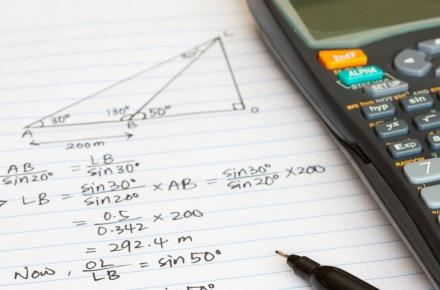 L
20°
30°
130°
50°
A
B
O
200m
AB/sin20° = LB/sin30°
LB = sin30°/sin20° × AB = sin30°/sin20° ×200
= 0.5/0.342 × 200
= 292.4 m
Now, OL/LB = sin 50°
2ndF
ALPHA
SET UP
hyp
sin
yx
Exp
RANDOM
7